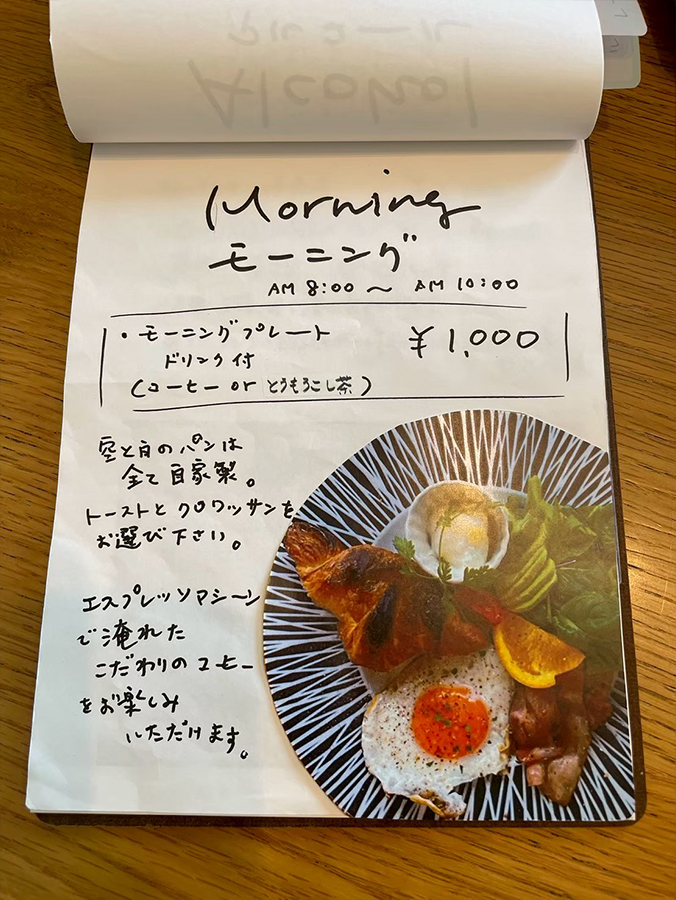 アルコール
Alcohol
Morning
モーニング
AM 8:00 〜 AM 10:00
・モーニングプレート ¥1,000
ドリンク付
(コーヒー or とうもろこし茶)
空と白のパンは
全て自家製。
トーストとクロワッサンを
お選び下さい。
エスプレッソマシーン
で淹れた
こだわりのコーヒー
をお楽しみ
いただけます。